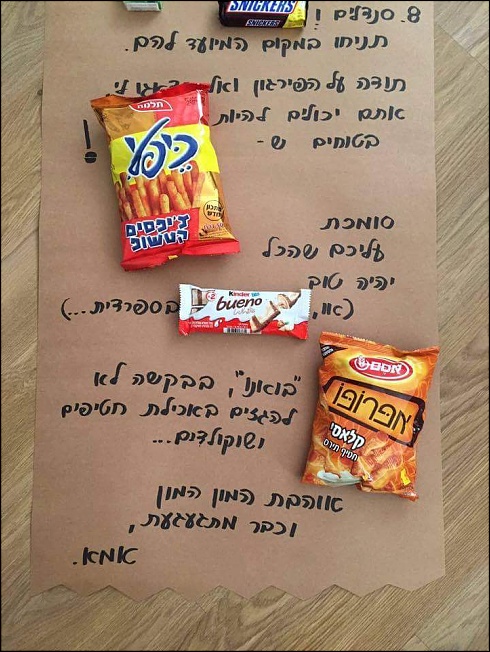 SNICKERS
SNICKERS
8. סנדלים!
תניחו במקום המיועד להם.
תודה על הפירגון ואל לי
אתם יכולים להיות
בטוחים ש-
!
תלמה
כיפלי
צ'יפסים
קטשופ
סומכת
עליכם שהכל
יהיה טוב
(או, בספרדית...)
Kinder
bueno
"בואנו", בבקשה לא
להגזים באכילת חטיפים
ושוקולדים...
אסם
אפרופו
קלאסי
חטיף תירס
אוהבת המון המון
וכבר מתגעגעת,
אמא.